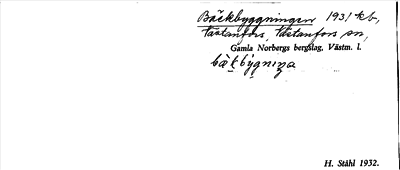 Bäckbyggningen 1931 kb,
Västanfors, Västanfors sn,
Gamla Norbergs bergslag, Västm. l.
bàk̠býgnıŋa
H. Ståhl 1932.